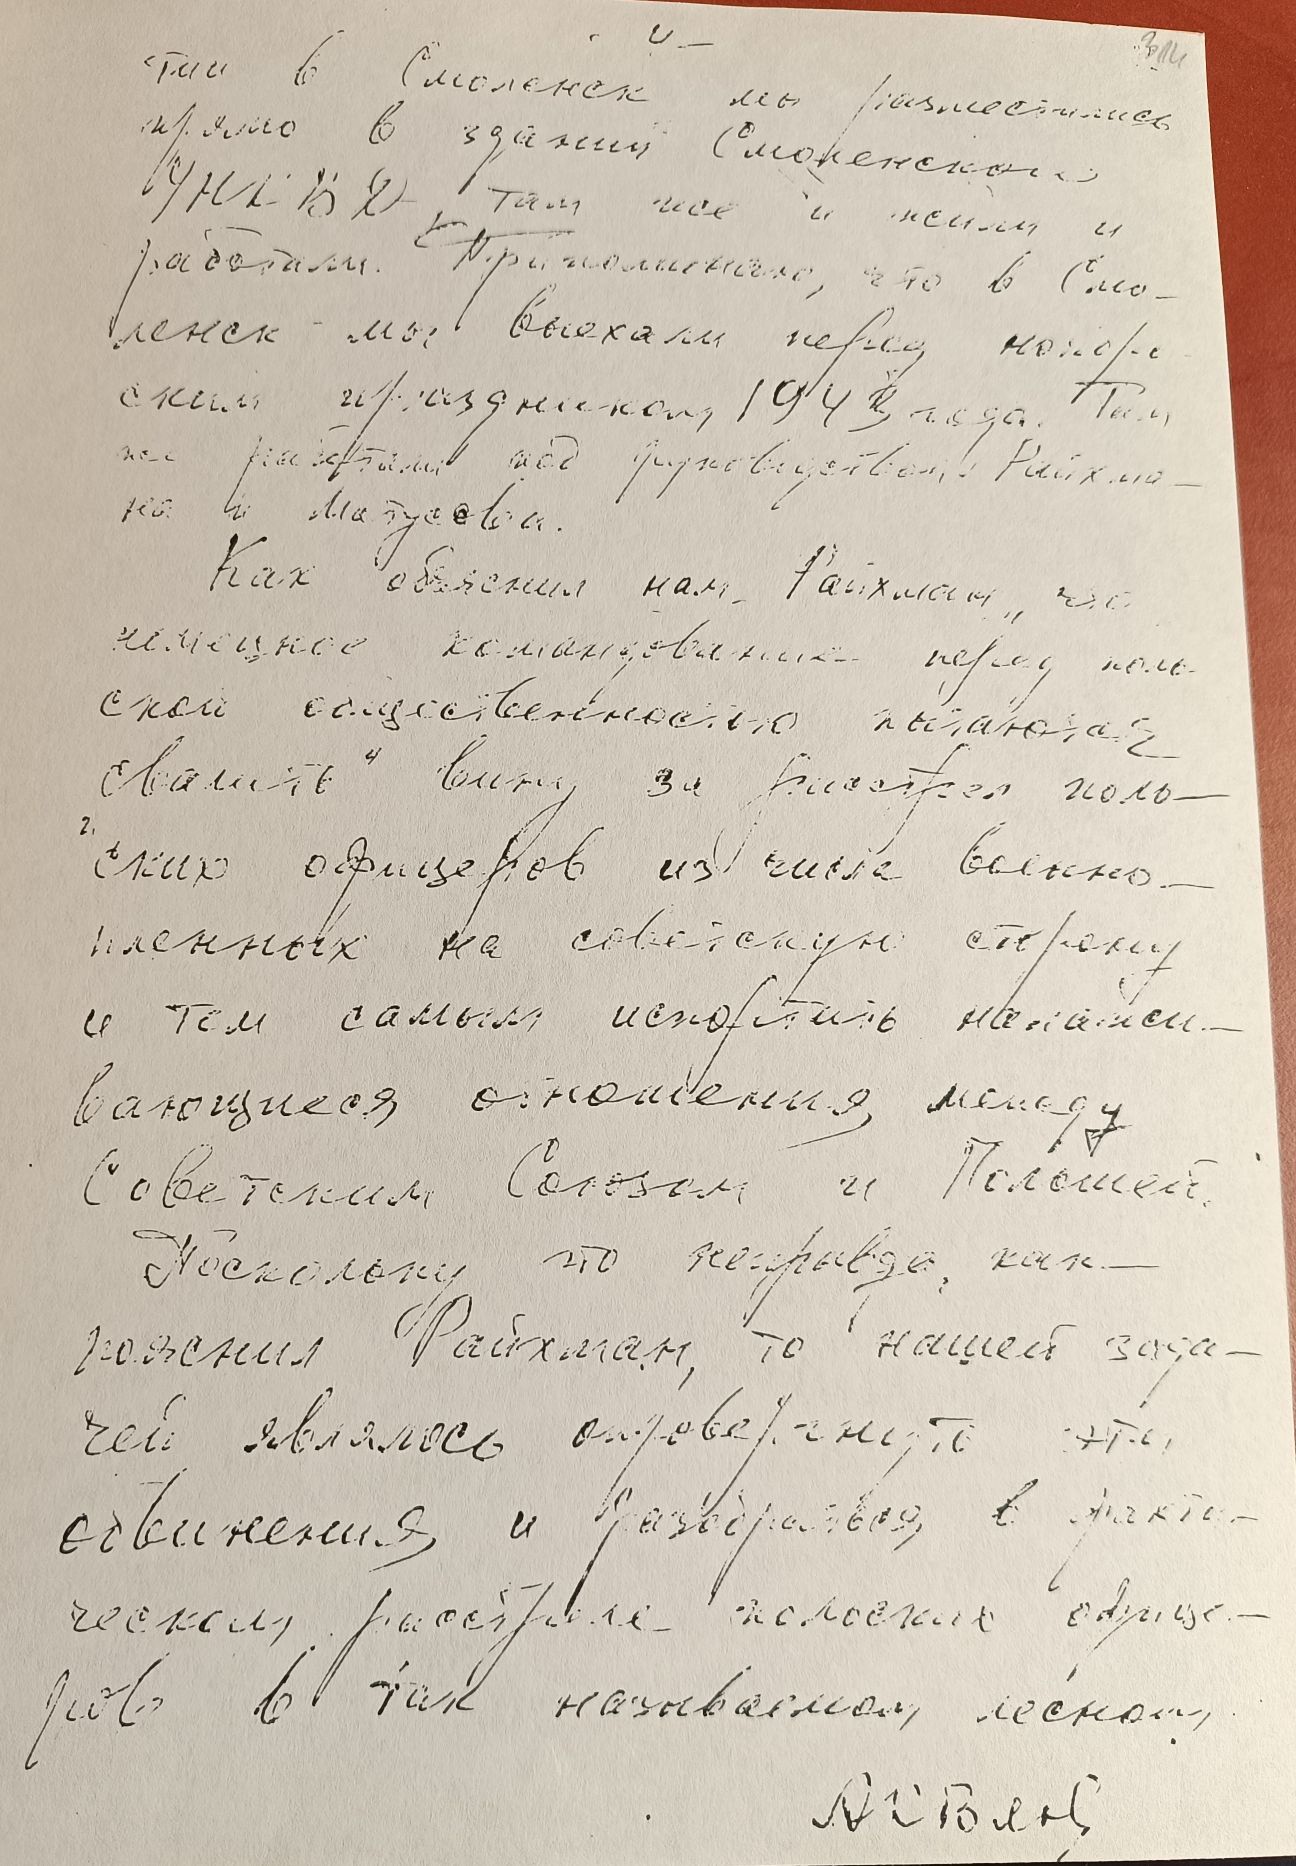 - 4 -
тии в Смоленск мы разместились
прямо в здании Смоленского
УНКВД, там же и жили и
работали. Припоминаю, что в Смо-
ленск мы выехали перед ноябрь-
скими праздником, 1943 года. Там
мы работали под руководством Райхма-
на и Матусова.
Как объяснил нам Райхман, что
немецкое командование перед поль-
ской общественностью пытаются
"свалить" вину за расстрел поль-
ских офицеров из числа военно-
пленных на советскую сторону
и тем самым испортить налажи-
вающиеся отношения между
Советским Союзом и Польшей.
Поскольку это неправда, как
пояснил Райхман, то нашей зада-
чей являлось опровергнуть эти
обвинения и разобраться в факти-
ческом расстреле польских офице-
ров в так называемом лесном